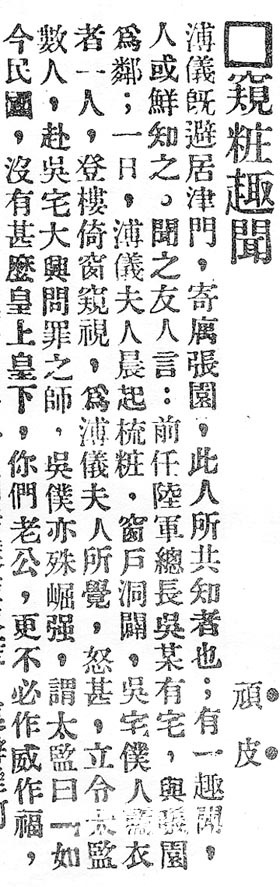 □窺粧趣聞
頑皮
溥儀旣避居津門，寄寓張園，此人所共知者也；有一趣聞，
人或鮮知之。聞之友人言：前任陸軍總長吳某有宅，與張園
爲鄰；一日，溥儀夫人晨起梳粧，窗戶洞闢，吳宅僕人衣
者一人，登樓倚窗窺視，爲溥儀夫人所覺，怒甚，立令太監
數人，赴吳宅大興問罪之師，吳僕亦殊崛强，謂太監曰「如
今民國，沒有甚麽皇上皇下，你們老公，更不必作威作福，